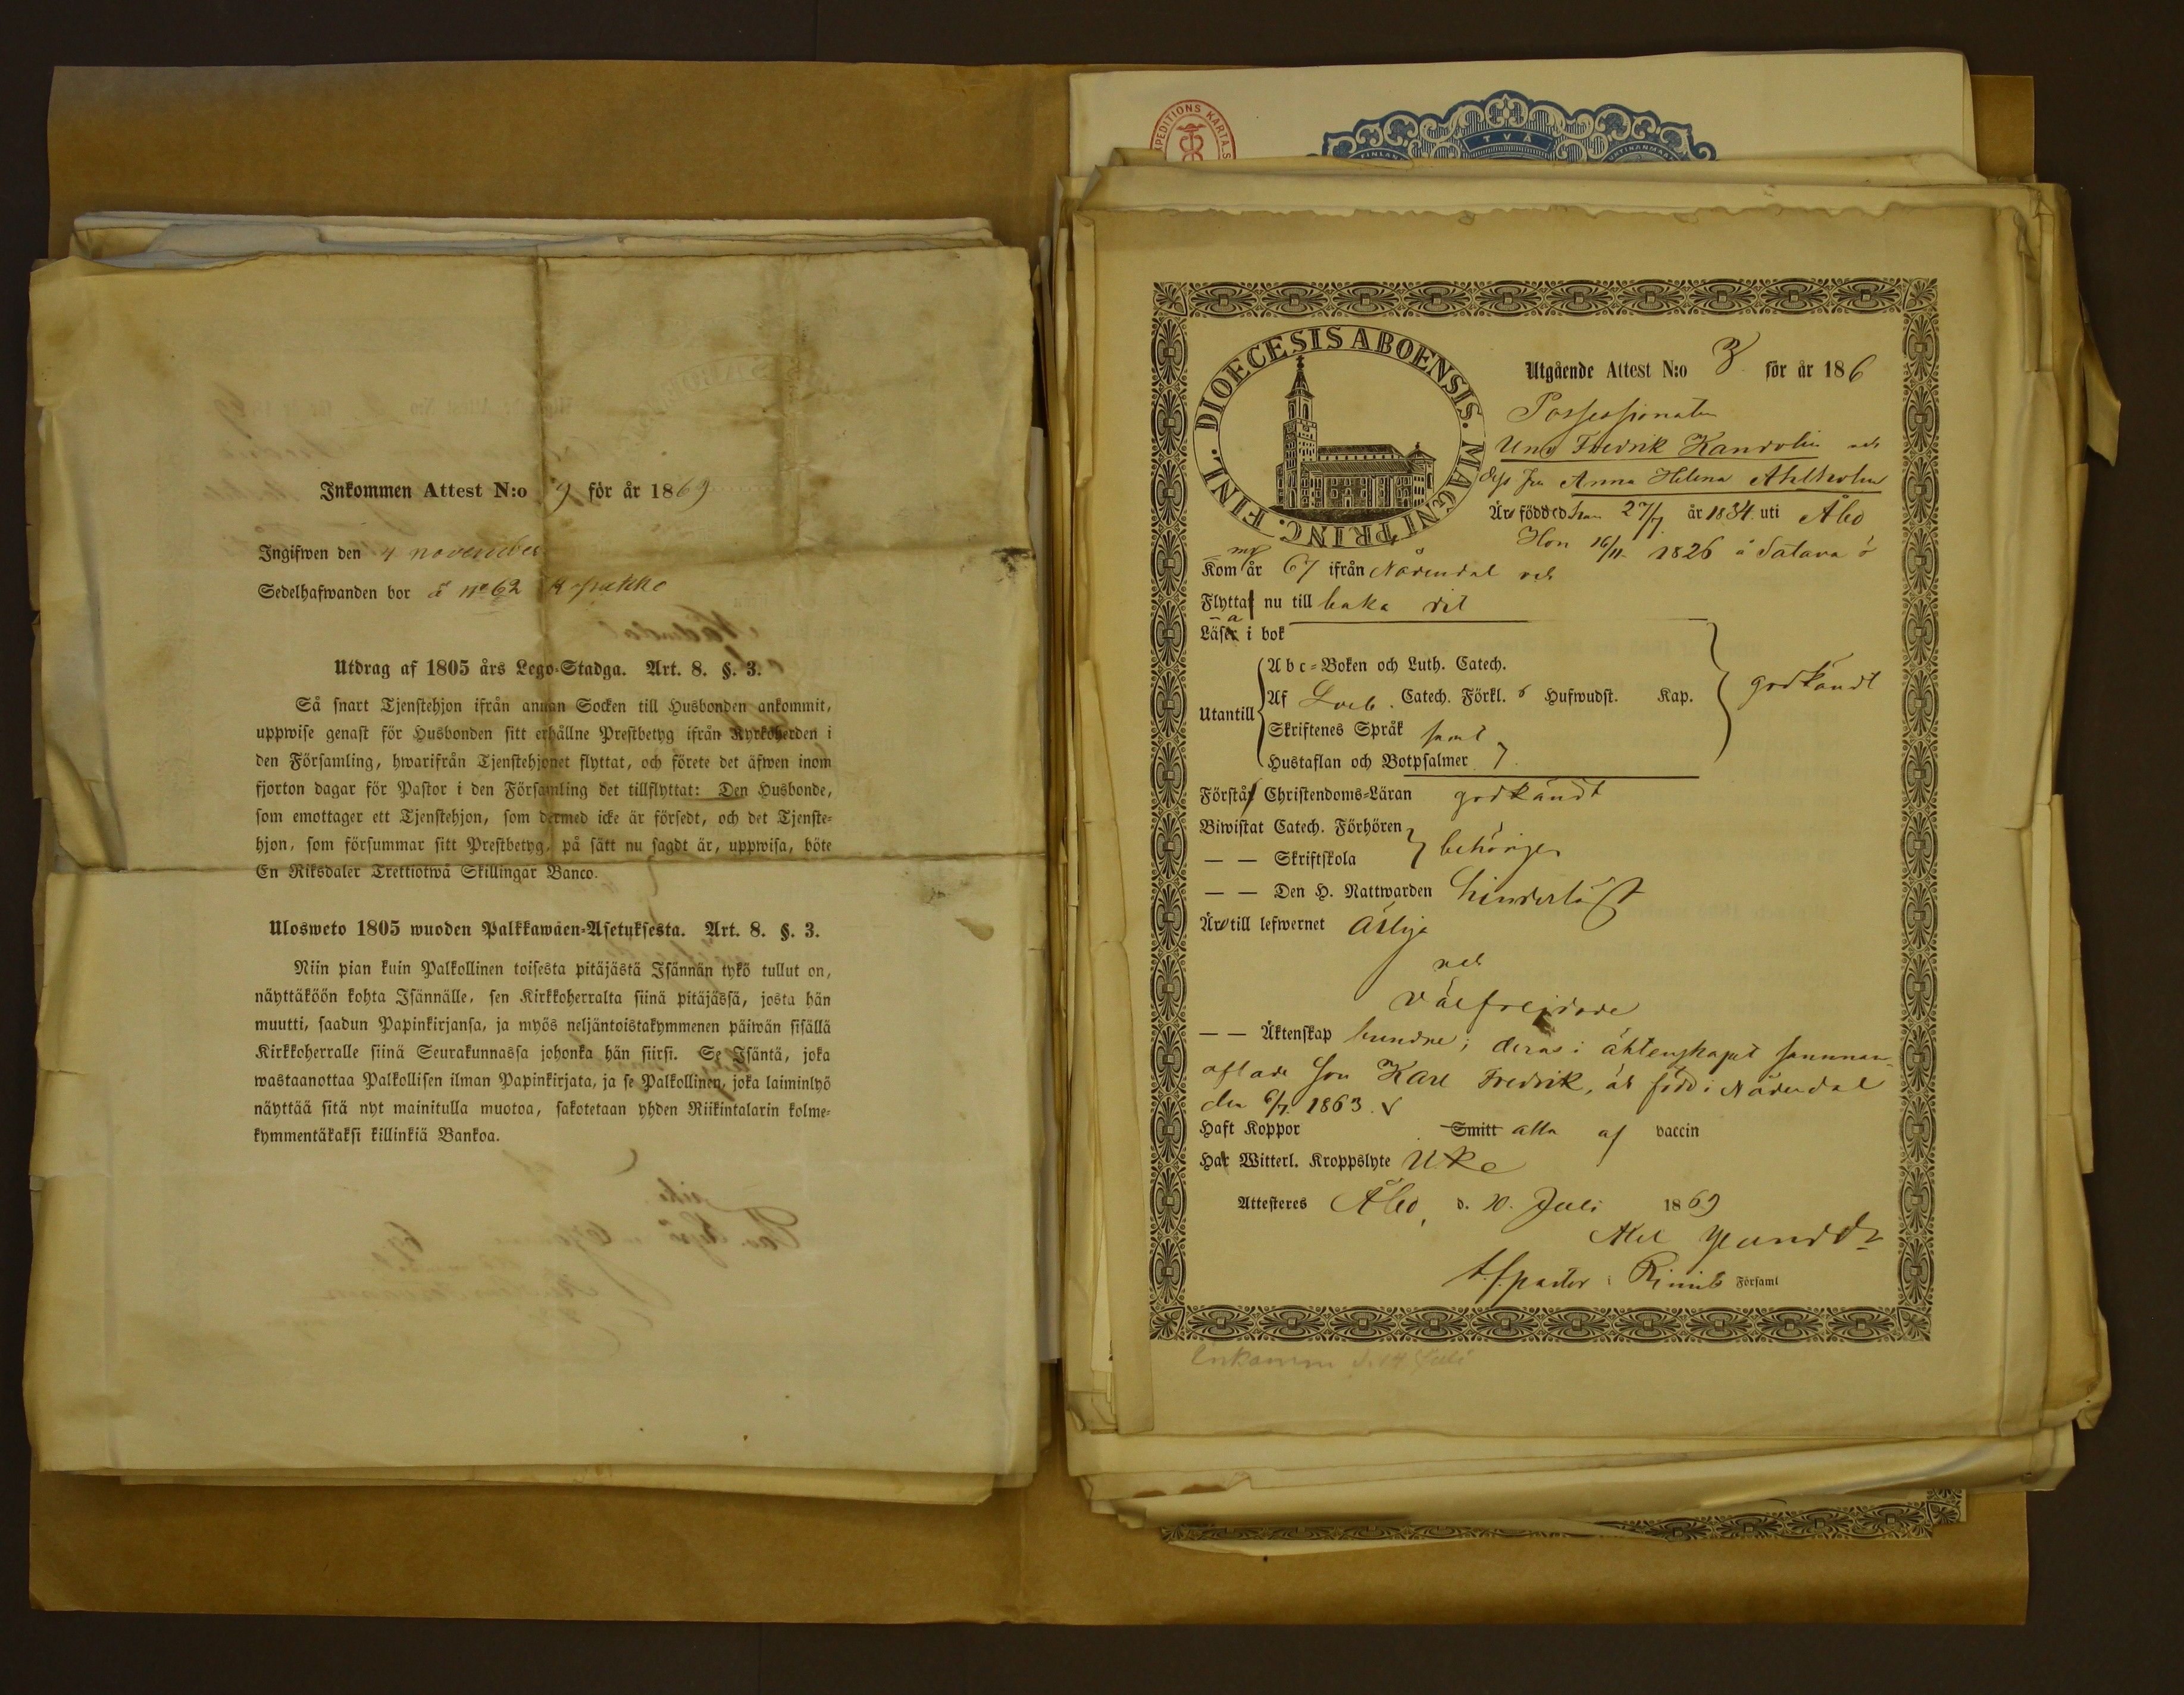 Inkommen Attest N:o 9 för år 1869
Ingifwen den 4 november
Sedelhafwanden bor å No 62
Utdrag af 1805 års Lego-Stadga. Art. 8. §. 3.
Så snart Tjenstehjon ifrån annan Socken till Husbonden ankommit,
uppwise genast för Husbonden sitt erhållne Prestbetyg ifrån Kyrkoherden i
den Församling, hwarifrån Tjenstehjonet flyttat, och förete det äfwen inom
fjorton dagar för Pastor i den Församling det tillflyttat: Den Husbonde,
som emottager ett Tjenstehjon, som dermed icke är försedt, och det Tjenste-
hjon, som försummar sitt Prestbetyg, på sätt nu sagdt är, uppwisa, böte
En Riksdaler Trettiotwå Skillingar Banco.
Ulosweto 1805 wuoden Palkkawäen-Asetuksesta. Art. 8. §. 3.
Niin pian kuin Palkollinen toisesta pitäjästä Isännän tykö tullut on,
näyttäköön kohta Isännälle, sen Kirkkoherralta siinä pitäjässä, josta hän
muutti, saadun Papinkirjansa, ja myös neljäntoistakymmenen päiwän sisällä
Kirkkoherralle siinä Seurakunnassa johonka hän siirsi. Se Isäntä, joka
wastaanottaa Palkollisen ilman Papinkirjata, ja se Palkollinen, joka laiminlyö
näyttää sitä nyt mainitulla muotoa, sakotetaan yhden Riikintalarin kolme-
kymmentäkaksi killinkiä Bankoa.
EXPEDITIONS KARTA.S
TVÅ
FINLAN
DIOECESIS ABOENSIS. MAGNI PRINC. FINL.
Utgående Attest N:o 3 för år 186
Possessionaten
Fredrik Kandolin och
dess fru Anna Helena Ahlholm
Är född d han 27/7 år 1834 uti Åbo
Hon 16/11 1826 å Satava ö
Kom år 67 ifrån Nådendal och
Flyttar nu till baka dit
Läser i bok
Utantill
Abc-Boken och Luth. Catech.
Af Catech. Förkl. 6 Hufwudst. Kap.
Skriftenes Språk samt
Hustaflan och Botpsalmer 7
godkändt
Förstår Christendoms-Läran godkändt
Biwistat Catech. Förhören
— — Skriftskola
behörigen
— — Den H. Nattwarden hinderlöst
Är till lefwernet ärlige
och
välfrejdade
— — Äktenskap bundne; deras i äktenskapet samman-
aflade son Karl Fredrik, är född i Nådendal
den 6/7 1863.
Haft Koppor Smitt alla af vaccin
Har Witterl. Kroppslyte Icke
Attesteres Åbo d. 10. Juli 1869
Axel
pastor i Rimito Församl
Inkommen d. 14 Juli